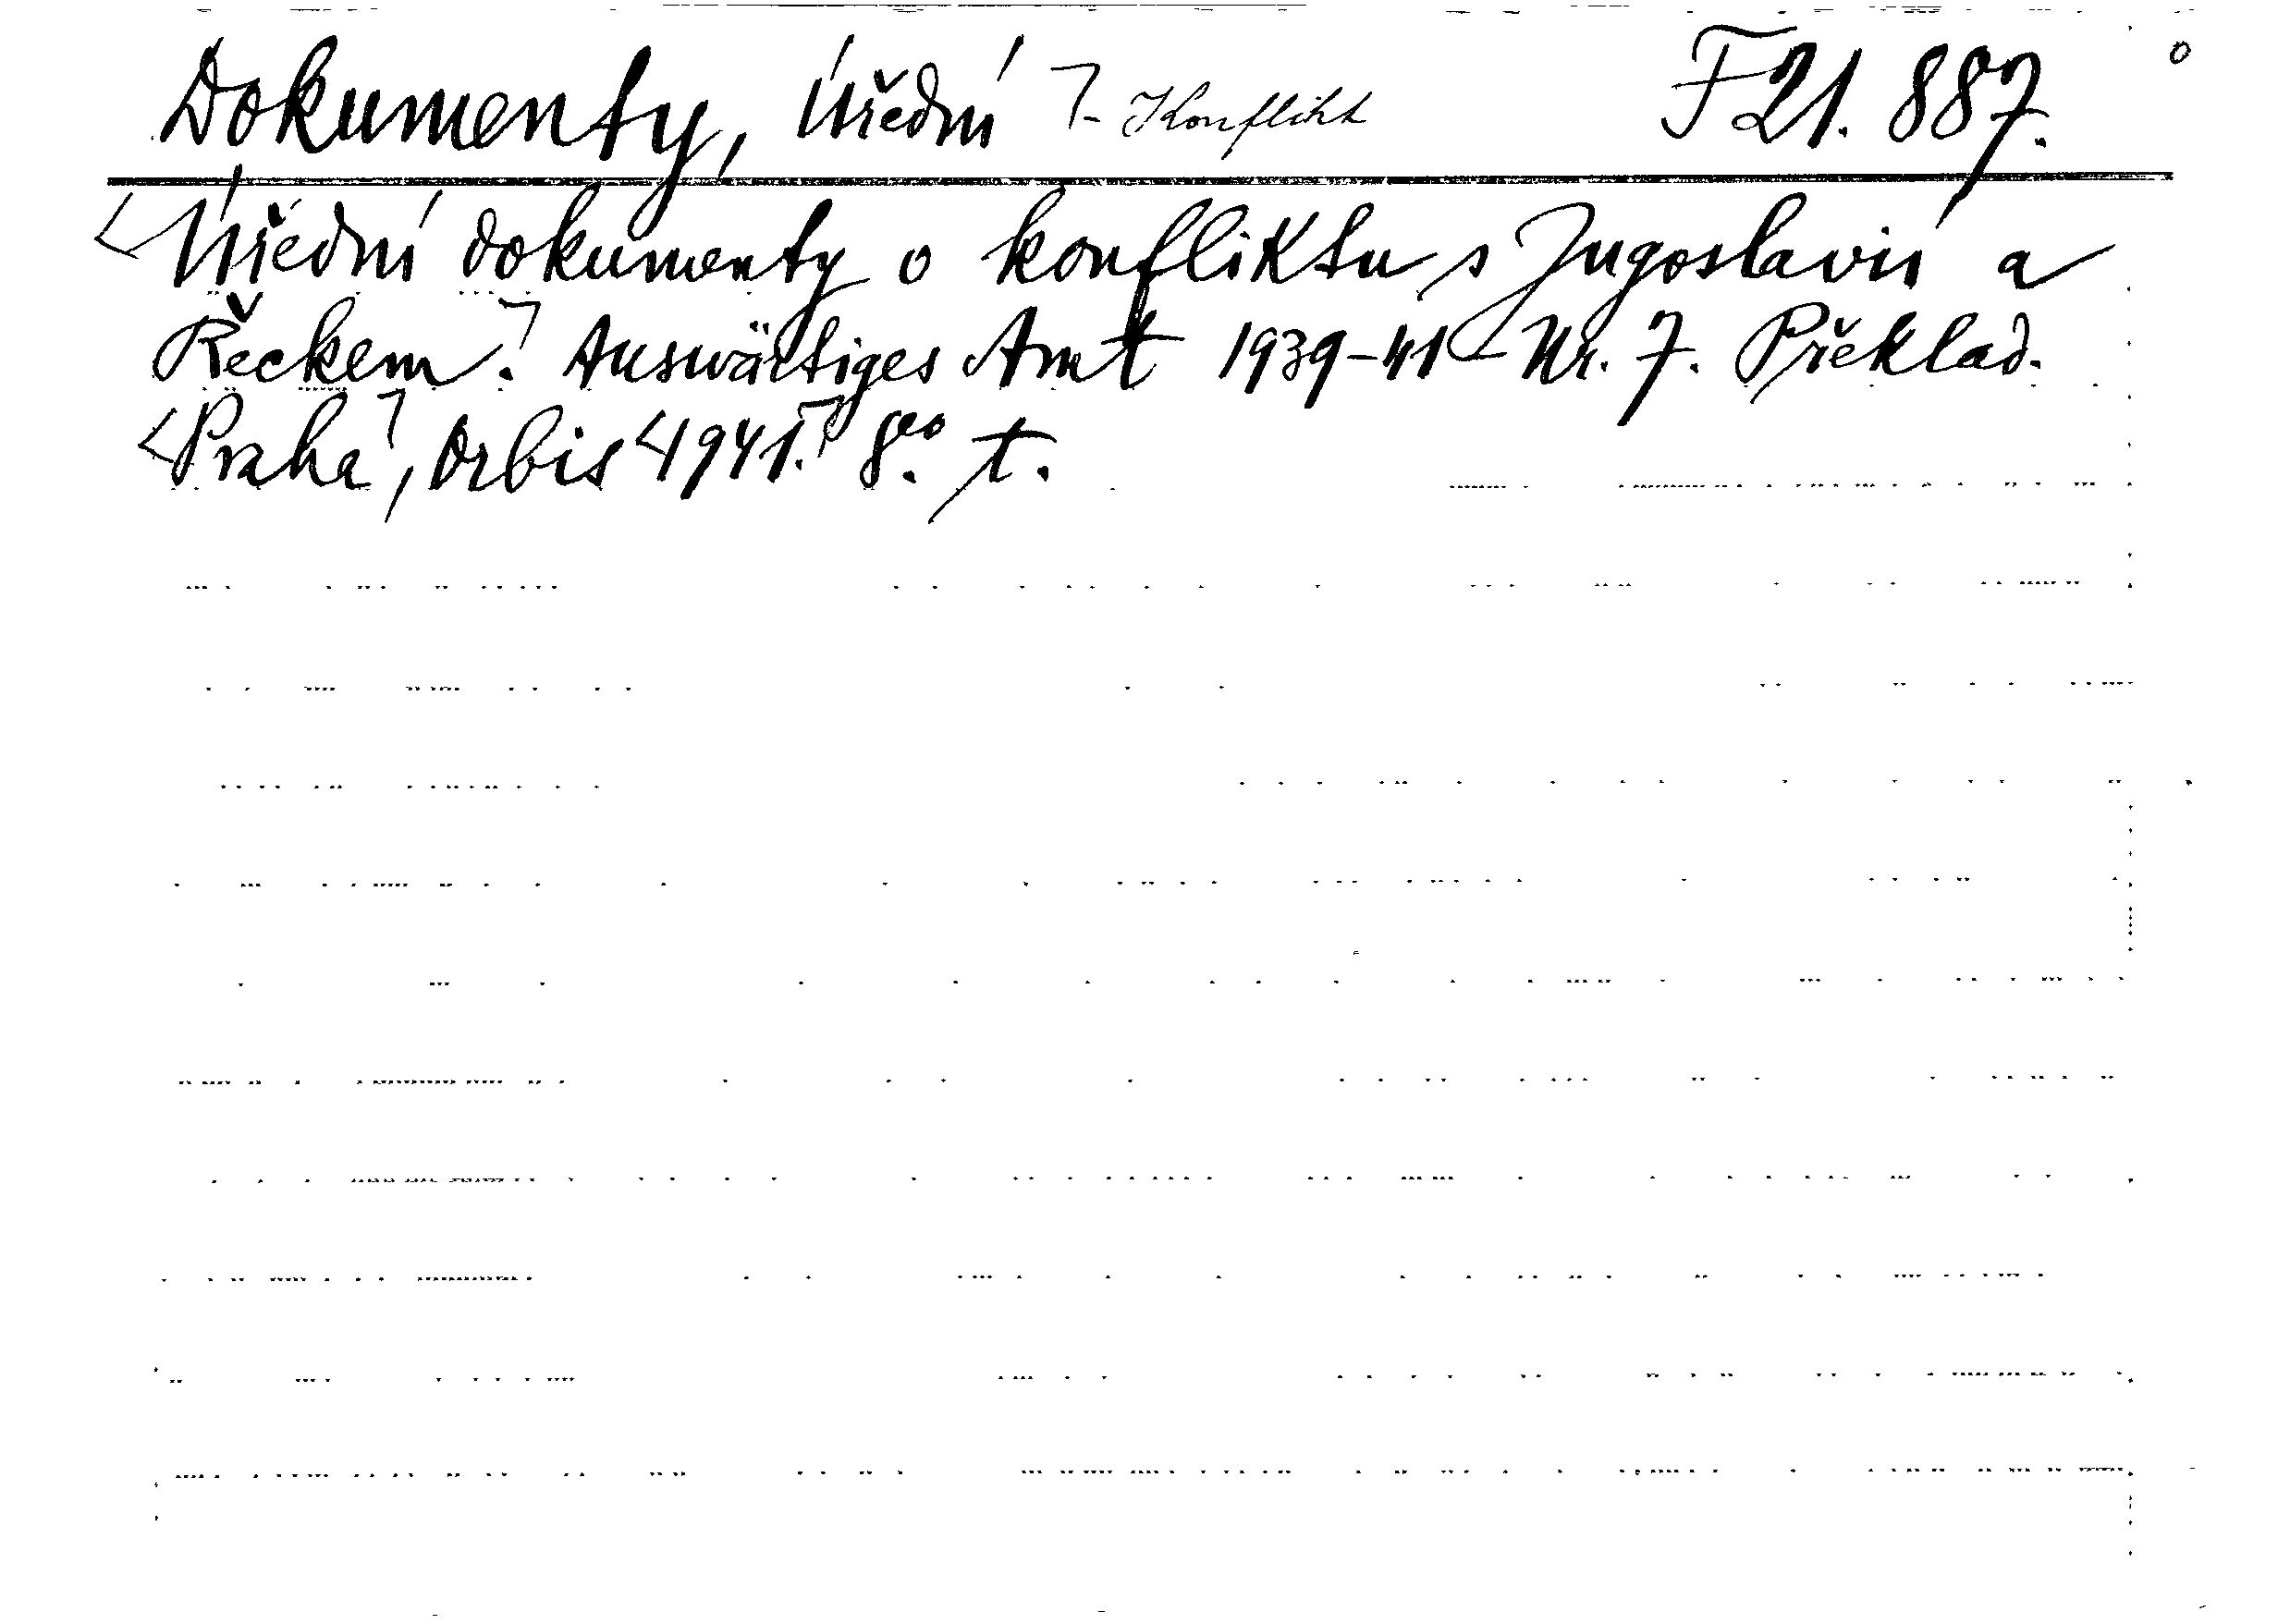 Dokumenty, Úřední ⌉ - Konflikt F 21. 887.
<Úřední dokumenty o konfliktu s Jugoslavií a
Řeckem.⌉ Auswärtiges Amt 1939-41 Nr. 7. Překlad.
<Praha⌉, Orbis <1941.⌉ 8.° t.